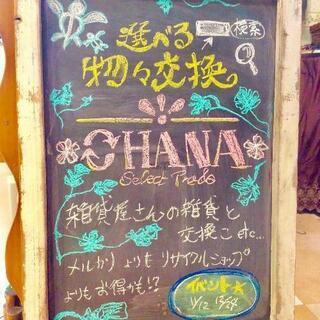 選べる
検索
物々交換
OHANA
Select Trade
雑貨屋さんの雑貨と
交換こ
メルカリよりもリサイクルショップ
よりもお得かも!?
イベント☆